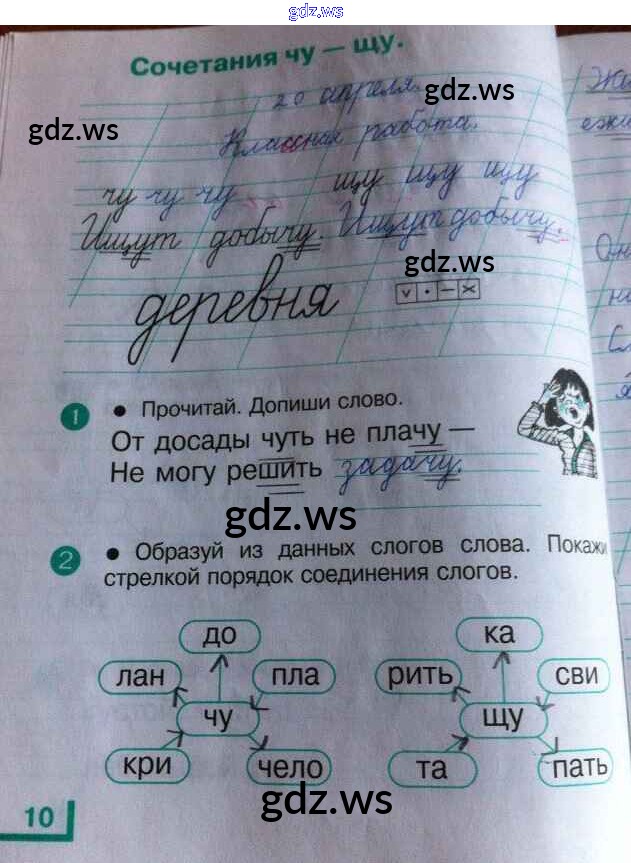 gdz.ws
Сочетания чу — щу.
20 апреля.
gdz.ws
gdz.ws
Классная работа.
чу чу чу щу щу щу
Ищут добычу. Ищут добычу.
gdz.ws
деревня
1 • Прочитай. Допиши слово.
От досады чуть не плачу —
Не могу решить задачу.
gdz.ws
2 • Образуй из данных слогов слова. Покажи
стрелкой порядок соединения слогов.
до ка
лан пла рить сви
чу щу
кри чело та пать
gdz.ws
10